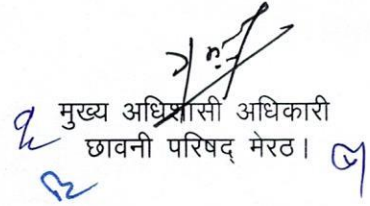 मुख्य अधिशासी अधिकारी
छावनी परिषद् मेरठ।